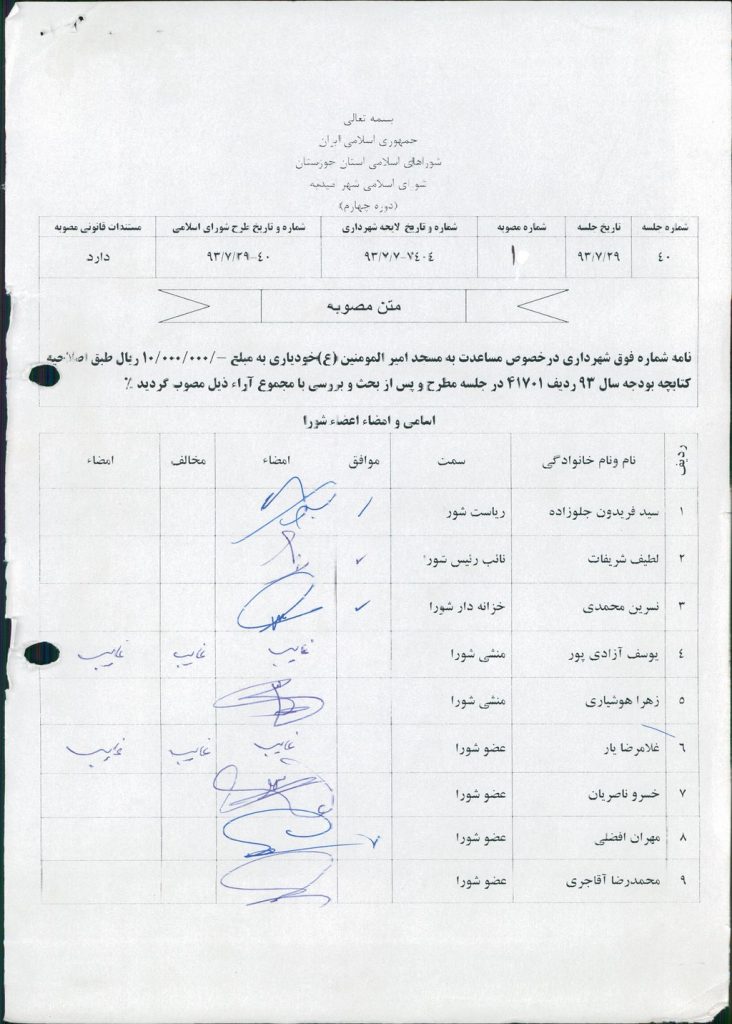 بسمه تعالی
جمهوری اسلامی ایران
شوراهای اسلامی استان خوزستان
شورای اسلامی شهر میداود
(دوره چهارم)
شماره جلسه تاریخ جلسه شماره مصوبه شماره و تاریخ لایحه شهرداری شماره و تاریخ طرح شورای اسلامی مستندات قانونی مصوبه
۴۰ ۹۳/۷/۲۹ ۱ ۹۳/۷/۷-۷۴۰۴ ۹۳/۷/۲۹-۴۰ دارد
متن مصوبه
نامه شماره فوق شهرداری درخصوص مساعدت به مسجد امیر المومنین (ع)خودیاری به مبلغ -/۱۰/۰۰۰/۰۰۰ ریال طبق اصلاحیه
کتابچه بودجه سال ۹۳ ردیف ۴۱۷۰۱ در جلسه مطرح و پس از بحث و بررسی با مجموع آراء ذیل مصوب گردید ٪
اسامی و امضاء اعضاء شورا
ردیف نام ونام خانوادگی سمت موافق امضاء مخالف امضاء
۱ سید فریدون جلوزاده ریاست شور
۲ لطیف شریفات نائب رئیس شورا
۳ نسرین محمدی خزانه دار شورا
۴ یوسف آزادی پور منشی شورا غایب غایب غایب
۵ زهرا هوشیاری منشی شورا
۶ غلامرضا یار عضو شورا غایب غایب غایب
۷ خسرو ناصریان عضو شورا
۸ مهران افضلی عضو شورا
۹ محمدرضا آقاجری عضو شورا